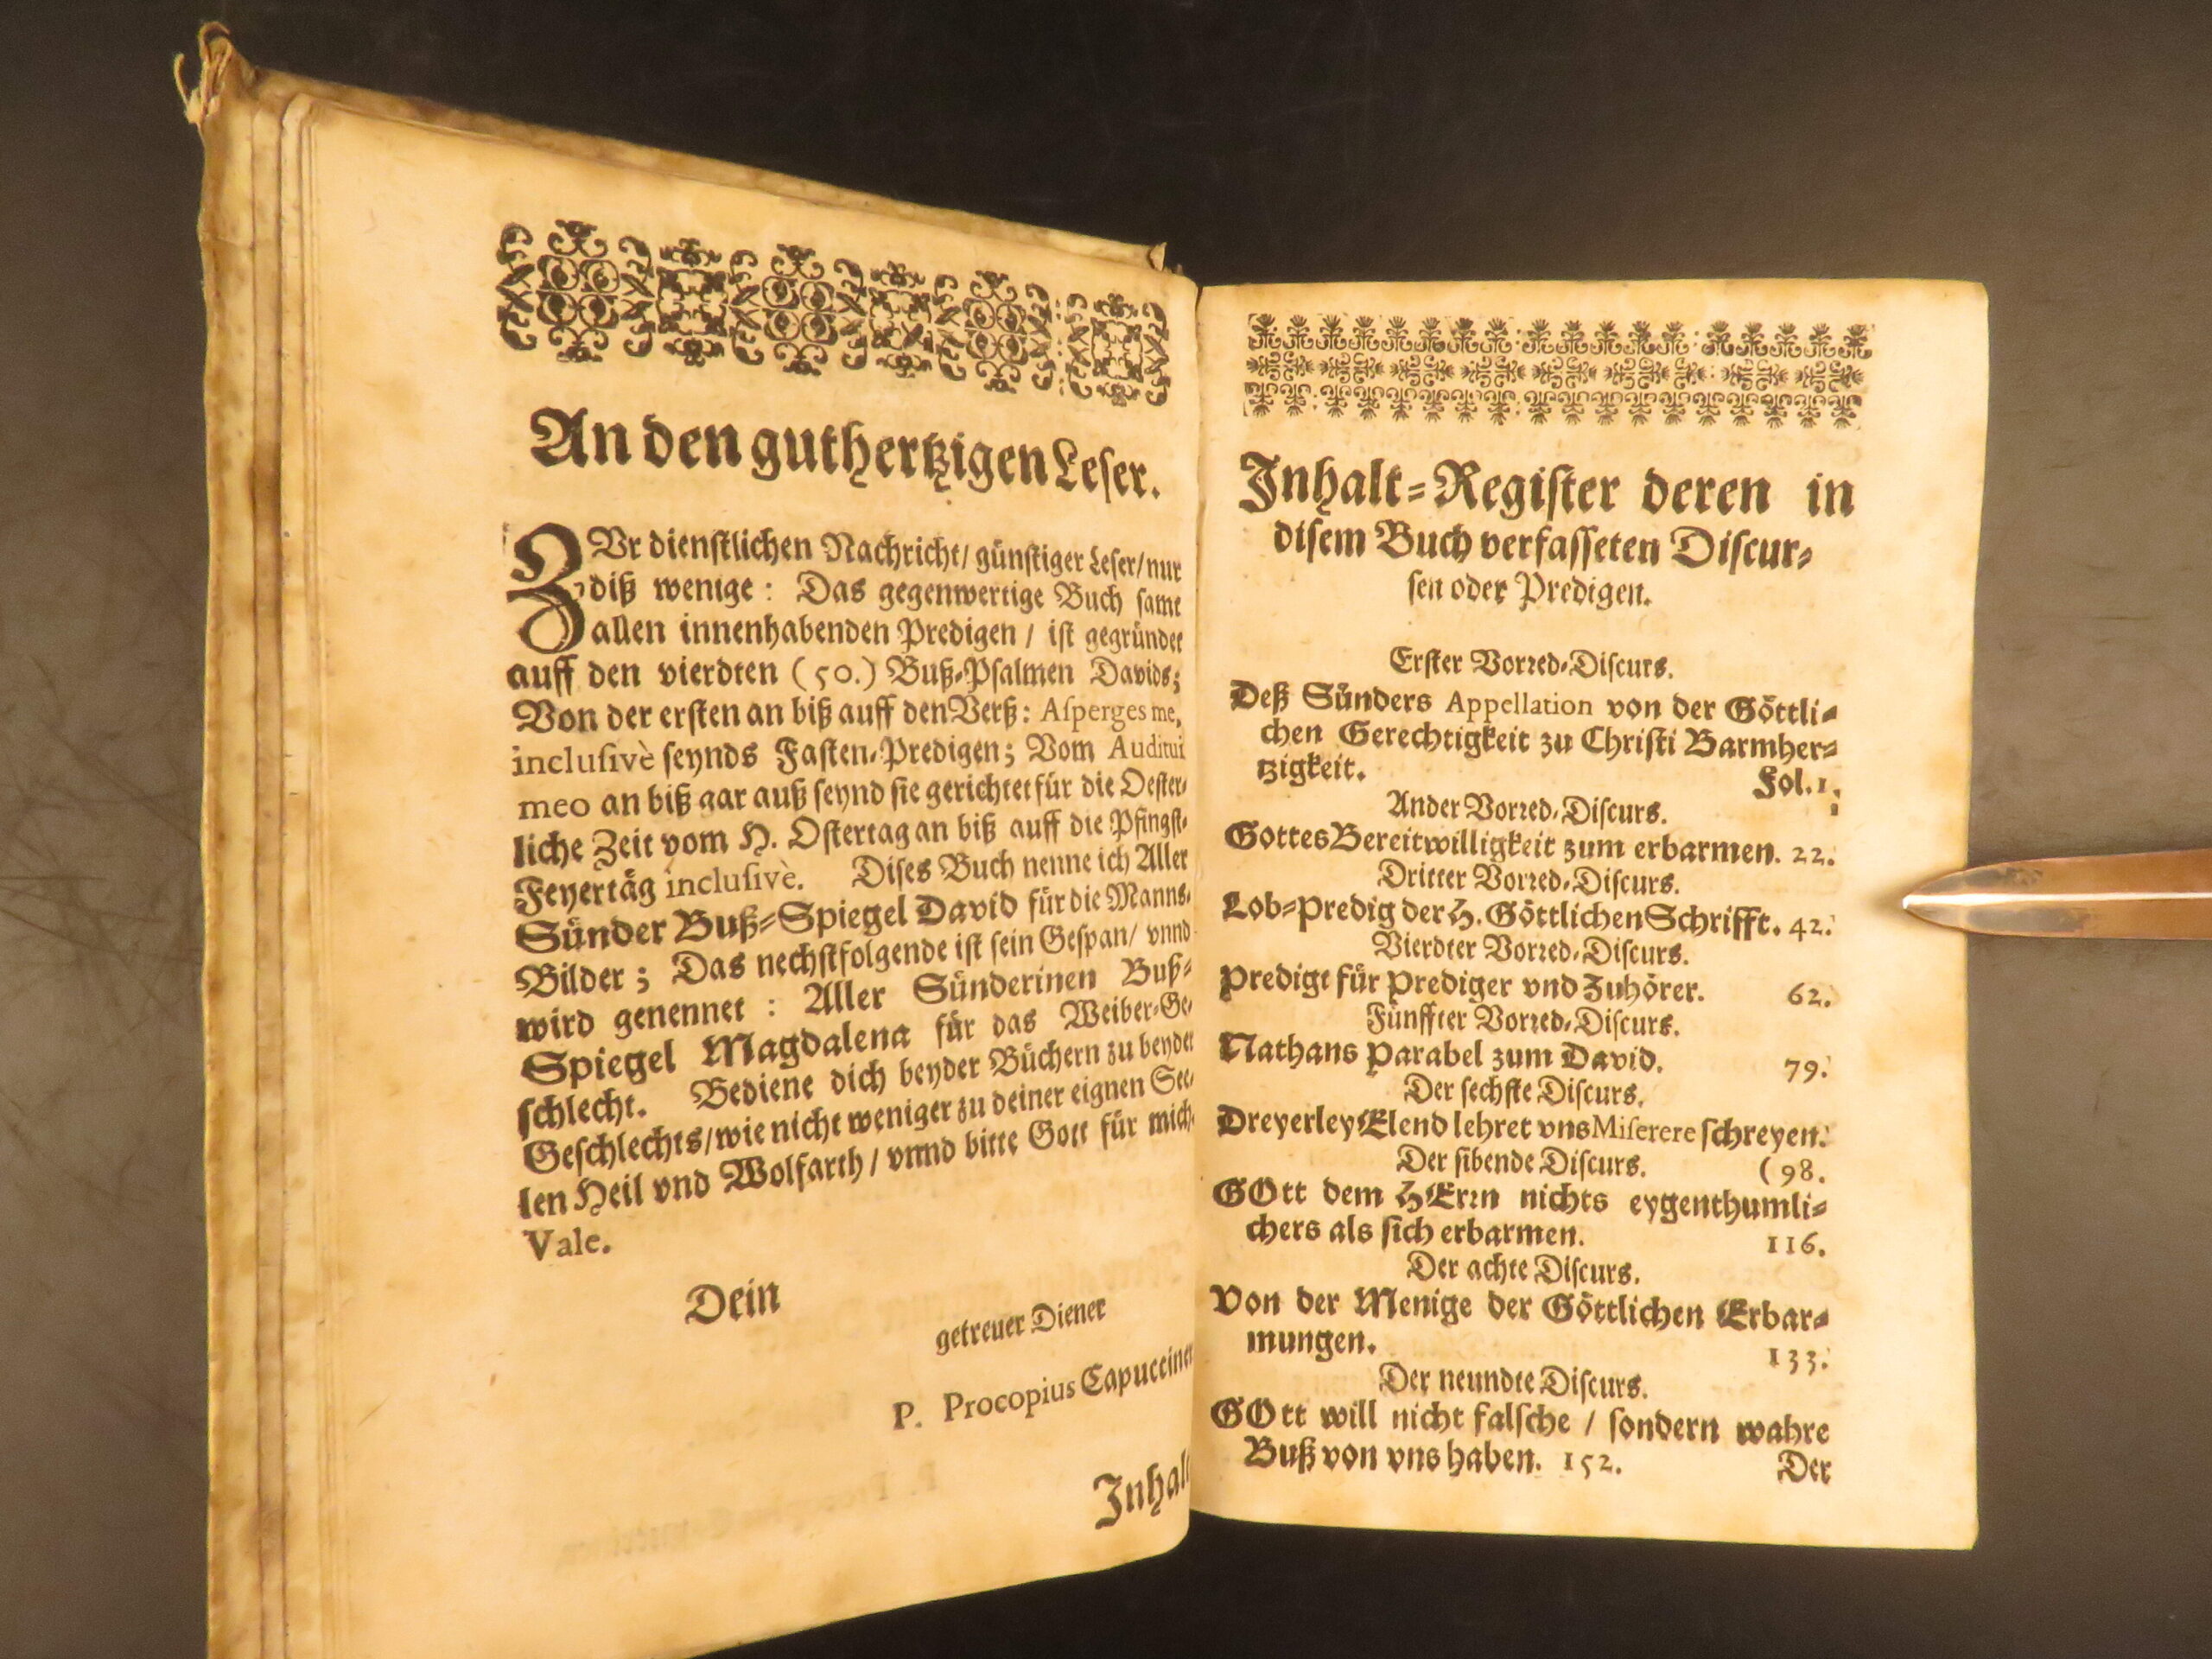 An den guthertzigen Leser.
ZUr dienstlichen Nachricht/ günstiger Leser/ nur
diß wenige: Das gegenwertige Buch samt
allen innenhabenden Predigen / ist gegründet
auff den vierdten (50.) Buß-Psalmen Davids;
Von der ersten an biß auff den Verß: Asperges me,
inclusivè seynds Fasten-Predigen; Vom Auditui
meo an biß gar auß seynd sie gerichtet für die Oester-
liche Zeit vom H. Ostertag an biß auff die Pfingst-
Feyertäg inclusivè. Dises Buch nenne ich Aller
Sünder Buß-Spiegel David für die Manns-
Bilder; Das nechstfolgende ist sein Gespan/ vnnd
wird genennet: Aller Sünderinen Buß-
Spiegel Magdalena für das Weiber-Ge-
schlecht. Bediene dich beyder Büchern zu beyder
Geschlechts/ wie nicht weniger zu deiner eignen See-
len Heil vnd Wolfarth / vnnd bitte Gott für mich.
Vale.
Dein
getreuer Diener
P. Procopius Capucciner
Inhalt
Inhalt-Register deren in
disem Buch verfasseten Discur-
sen oder Predigen.
Erster Vorred-Discurs.
Deß Sünders Appellation von der Göttli-
chen Gerechtigkeit zu Christi Barmher-
tzigkeit. Fol. 1.
Ander Vorred-Discurs.
Gottes Bereitwilligkeit zum erbarmen. 22.
Dritter Vorred-Discurs.
Lob-Predig der H. Göttlichen Schrifft. 42.
Vierdter Vorred-Discurs.
Predigt für Prediger vnd Zuhörer. 62.
Fünffter Vorred-Discurs.
Nathans Parabel zum David. 79.
Der sechste Discurs.
Dreyerley Elend lehret vns Miserere schreyen.
Der sibende Discurs. (98.
GOtt dem HErrn nichts eygenthumli-
chers als sich erbarmen. 116.
Der achte Discurs.
Von der Menige der Göttlichen Erbar-
mungen. 133.
Der neundte Discurs.
GOtt will nicht falsche / sondern wahre
Buß von vns haben. 152. Der